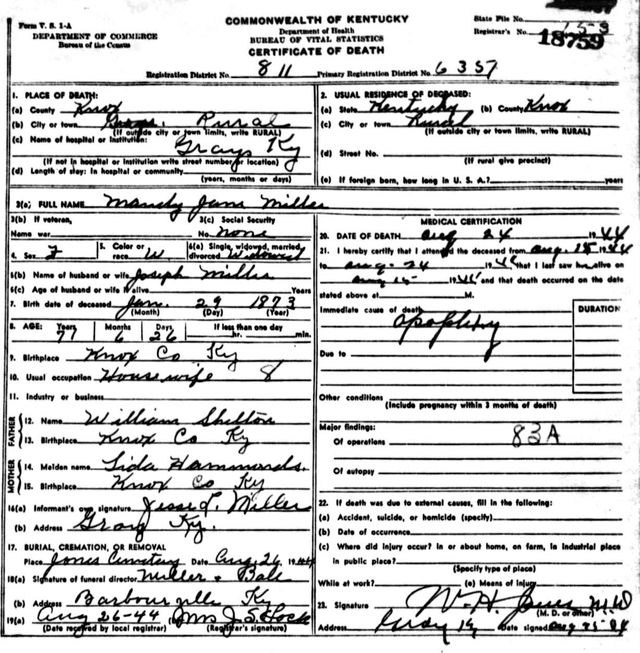 Form V. S. 1-A
DEPARTMENT OF COMMERCE
Bureau of the Census
COMMONWEALTH OF KENTUCKY
Department of Health
BUREAU OF VITAL STATISTICS
CERTIFICATE OF DEATH
State File No.
Registrar's No. 159
18759
Registration District No. 811 Primary Registration District No. 6357
1. PLACE OF DEATH:
(a) County Knox
(b) City or town Rural
(If outside city or town limits, write RURAL)
(c) Name of hospital or institution: Grays Ky
(If not in hospital or institution write street number or location)
(d) Length of stay: In hospital or community
(years, months or days)
2. USUAL RESIDENCE OF DECEASED:
(a) State Kentucky (b) County Knox
(c) City or town Rural
(If outside city or town limits, write RURAL)
(d) Street No.
(If rural give precinct)
(e) If foreign born, how long in U. S. A.? years
3(a) FULL NAME Mandy Jane Miller
3(b) If veteran, 3(c) Social Security
Name war No. none
4. Sex F 5. Color or race W 6(a) Single, widowed, married, divorced Widowed
6(b) Name of husband or wife Joseph Miller
6(c) Age of husband or wife if alive Years
7. Birth date of deceased Jan. 29 1873
(Month) (Day) (Year)
8. AGE: Years Months Days If less than one day
71 6 26 hr. min.
9. Birthplace Knox Co Ky
10. Usual occupation Housewife 8
11. Industry or business
FATHER
12. Name William Shelton
13. Birthplace Knox Co Ky
MOTHER
14. Maiden name Lida Hammonds
15. Birthplace Knox Co Ky
16(a) Informant's own signature Jesse L. Miller
(b) Address Gray Ky.
17. BURIAL, CREMATION, OR REMOVAL
Place Jones Cemetery Date Aug. 26 1944
18(a) Signature of funeral director Miller & Ball
(b) Address Barbourville Ky
19(a) Aug 26-44 Mrs J. S.
(Date received by local registrar) (Registrar's signature)
MEDICAL CERTIFICATION
20. DATE OF DEATH Aug 24 1944
21. I hereby certify that I attended the deceased from Aug. 15 1944
to Aug. 24 1944 that I last saw h alive on
Aug 15 1944 and that death occurred on the date
stated above at M.
Immediate cause of death DURATION
apoplexy
Due to
Other conditions
(Include pregnancy within 3 months of death)
Major findings:
Of operations 83A
Of autopsy
22. If death was due to external causes, fill in the following:
(a) Accident, suicide, or homicide (specify)
(b) Date of occurrence
(c) Where did injury occur? In or about home, on farm, in industrial place
in public place?
(Specify type of place)
While at work? (e) Means of injury
23. Signature W. H. M.D
(M. D. or other)
Address Gray Ky Date signed Aug 25-44